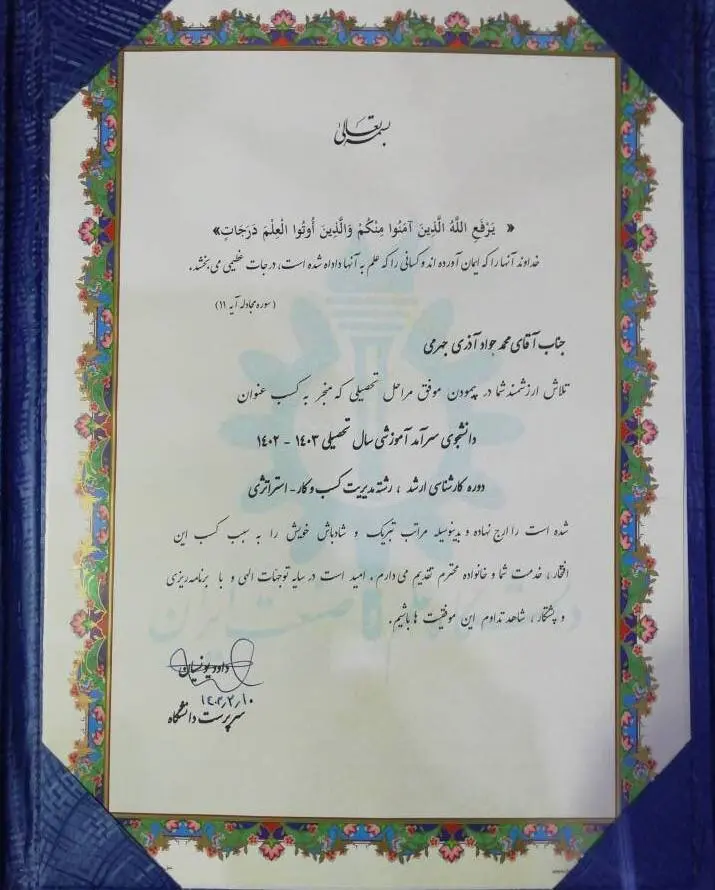 بسمه تعالی
« يَرْفَعِ اللَّهُ الَّذِينَ آمَنُوا مِنْكُمْ وَالَّذِينَ أُوتُوا الْعِلْمَ دَرَجَاتٍ»
خداوند آنها را که ایمان آورده اند و کسانی را که علم به آنها داداه شده است، درجات عظیمی می بخشد.
(سوره مجادله آیه ۱۱)
جناب آقای محمد جواد آذری جهرمی
تلاش ارزشمند شما در پیمودن موفق مراحل تحصیلی که منجر به کسب عنوان
دانشجوی سرآمد آموزشی سال تحصیلی ۱۴۰۳ - ۱۴۰۲
دوره کارشناسی ارشد ، رشته مدیریت کسب و کار - استراتژی
شده است را ارج نهاده و بدینوسیله مراتب تبریک و شادباش خویش را به سبب کسب این
افتخار ، خدمت شما و خانواده محترم تقدیم می دارم . امید است در سایه توجهات الهی و با برنامه ریزی
و پشتکار ، شاهد تداوم این موفقیت ها باشیم.
دانشگاه علم و صنعت ایران
داود یونسیان
۱۴۰۳/۲/۱۰
سرپرست دانشگاه